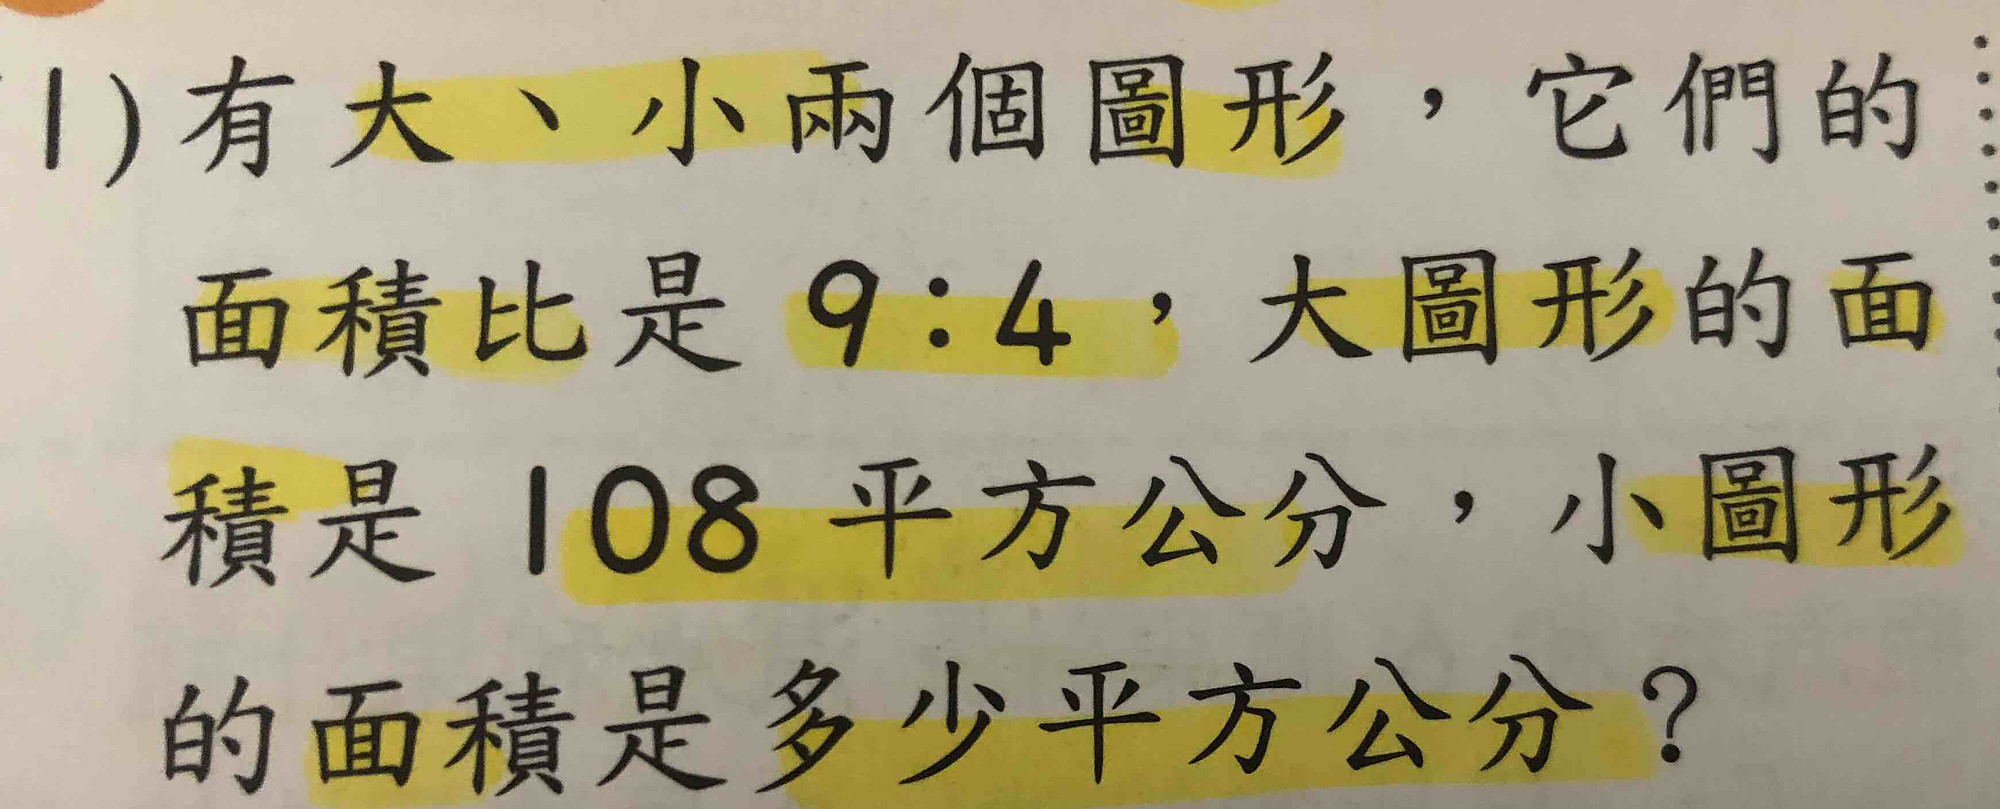 1)有大、小兩個圖形，它們的
面積比是9：4，大圖形的面
積是108平方公分，小圖形
的面積是多少平方公分？